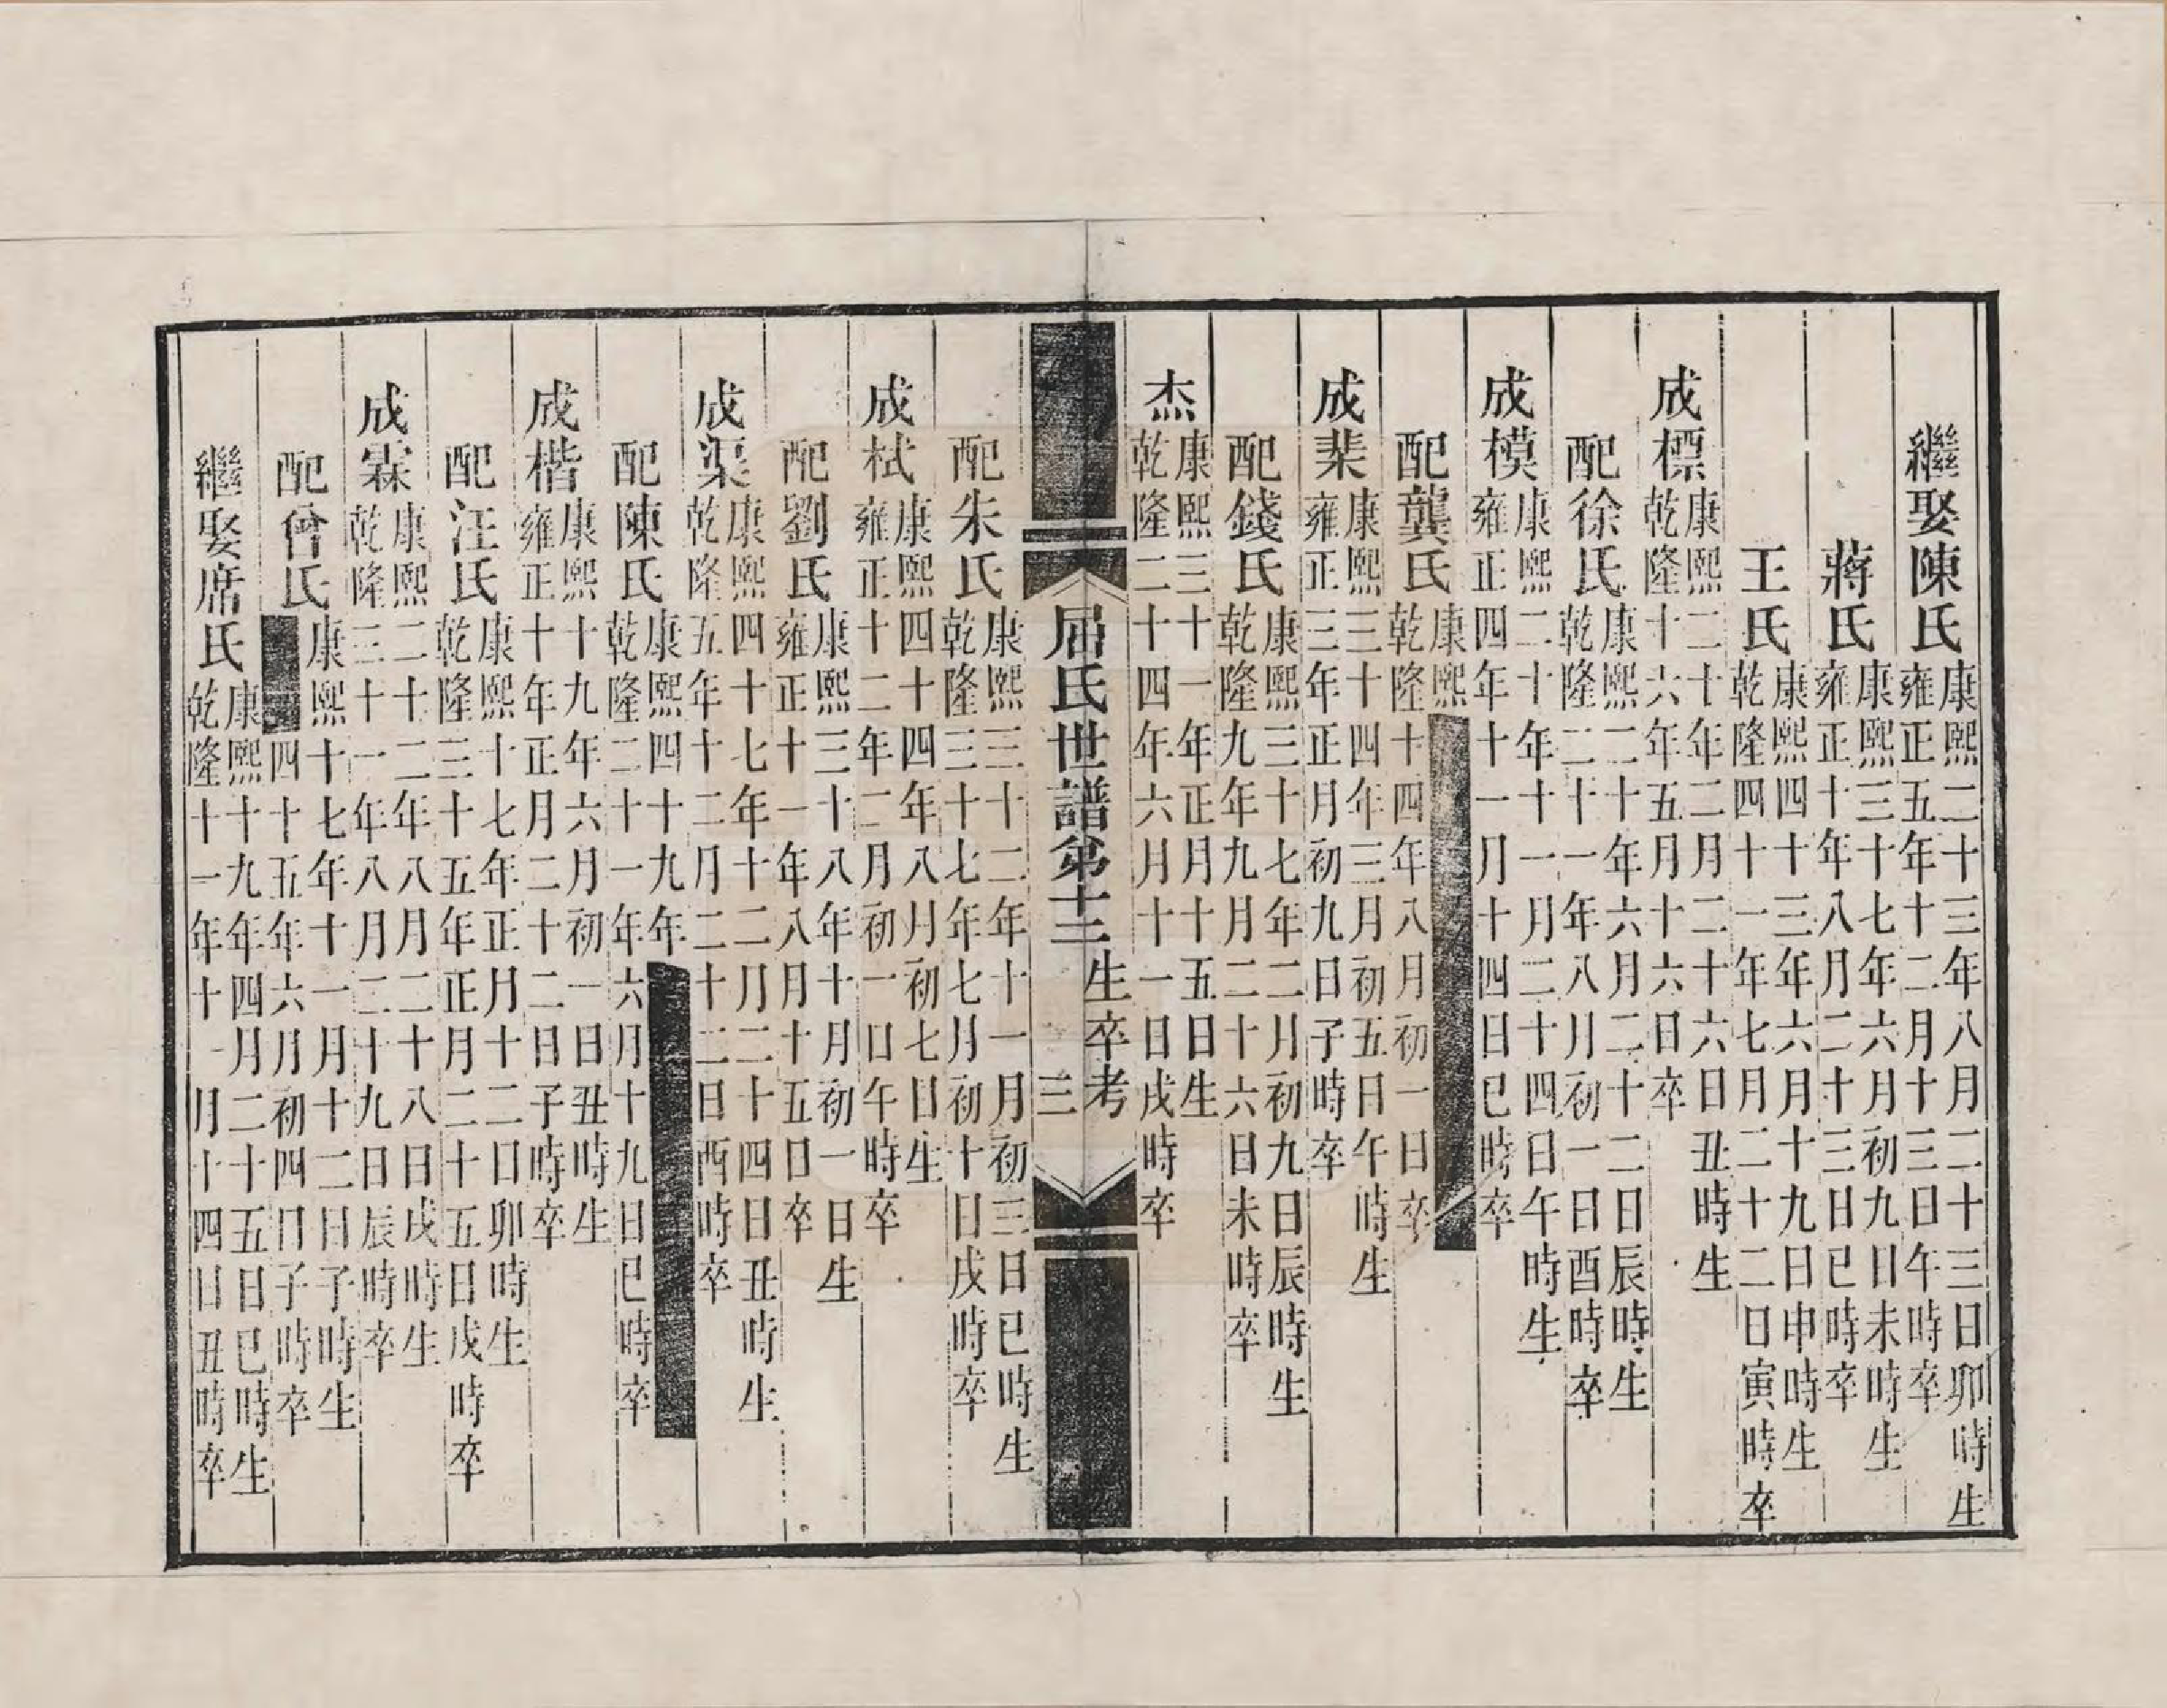 繼娶陳氏康熙二十三年八月二十三日卯時生
雍正五年十二月十三日午時卒
蔣氏康熙三十七年六月初九日未時生
雍正十年八月二十三日巳時卒
王氏康熙四十三年六月十九日申時生
乾隆四十一年七月二十二日寅時卒
成標康熙二十年二月二十六日丑時生
乾隆十六年五月十六日卒
配徐氏康熙二十年六月二十二日辰時生
乾隆二十一年八月初一日酉時卒
成模康熙二十年十一月二十四日午時生
雍正四年十一月十四日巳時卒
配龔氏康熙
乾隆十四年八月初一日卒
成棐康熙三十四年三月初五日午時生
雍正三年正月初九日子時卒
配錢氏康熙三十七年二月初九日辰時生
乾隆九年九月二十六日未時卒
杰康熙三十一年正月十五日生
乾隆二十四年六月十一日戌時卒
屈氏世譜弟十三生卒考 三
配朱氏康熙三十二年十一月初三日巳時生
乾隆三十七年七月初十日戌時卒
成栻康熙四十四年八月初七日生
雍正十二年二月初一日午時卒
配劉氏康熙三十八年十月初一日生
雍正十一年八月十五日卒
成榘康熙四十七年十二月二十四日丑時生
乾隆五年十二月二十二日酉時卒
配陳氏康熙四十九年
乾隆二十一年六月十九日巳時卒
成楷康熙十九年六月初一日丑時生
雍正十年正月二十二日子時卒
配汪氏康熙十七年正月十二日卯時生
乾隆三十五年正月二十五日戌時卒
成霖康熙二十二年八月二十八日戌時生
乾隆三十一年八月二十九日辰時卒
配曾氏康熙十七年十一月十二日子時生
四十五年六月初四日子時卒
繼娶席氏康熙十九年四月二十五日巳時生
乾隆十一年十一月十四日丑時卒